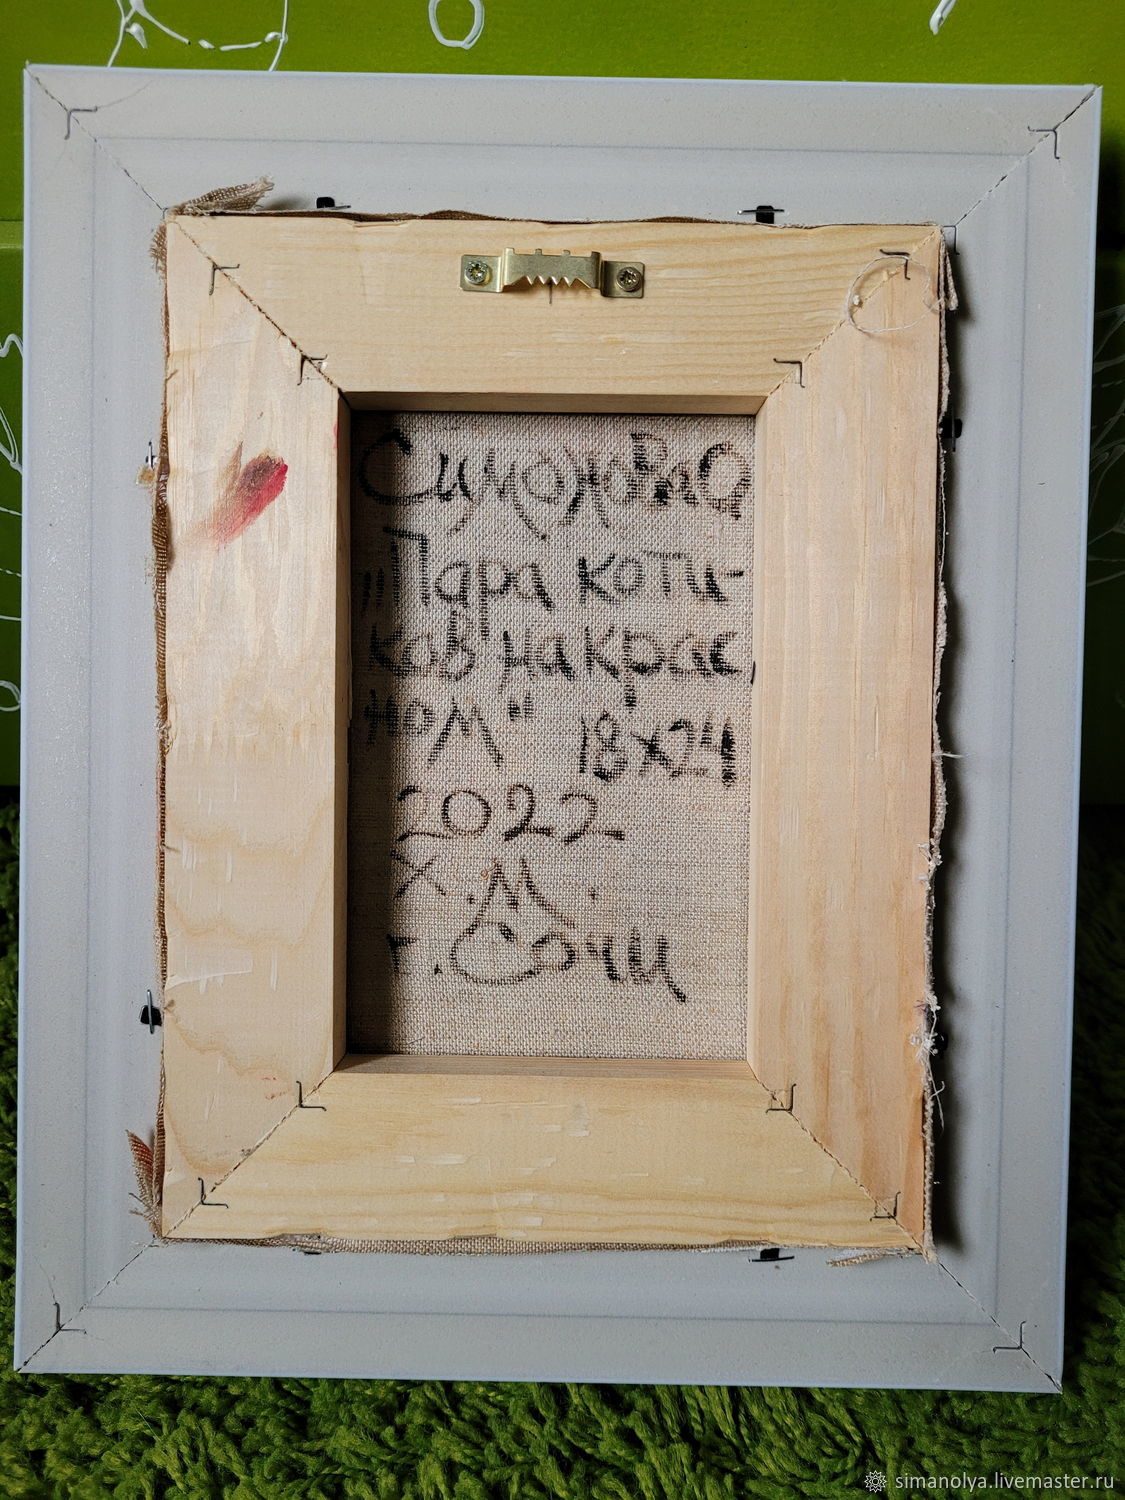 Симонова О
"Пара коти-
ков на крас
ном" 18х24
2022
х.м.
г. Сочи
simanolya.livemaster.ru